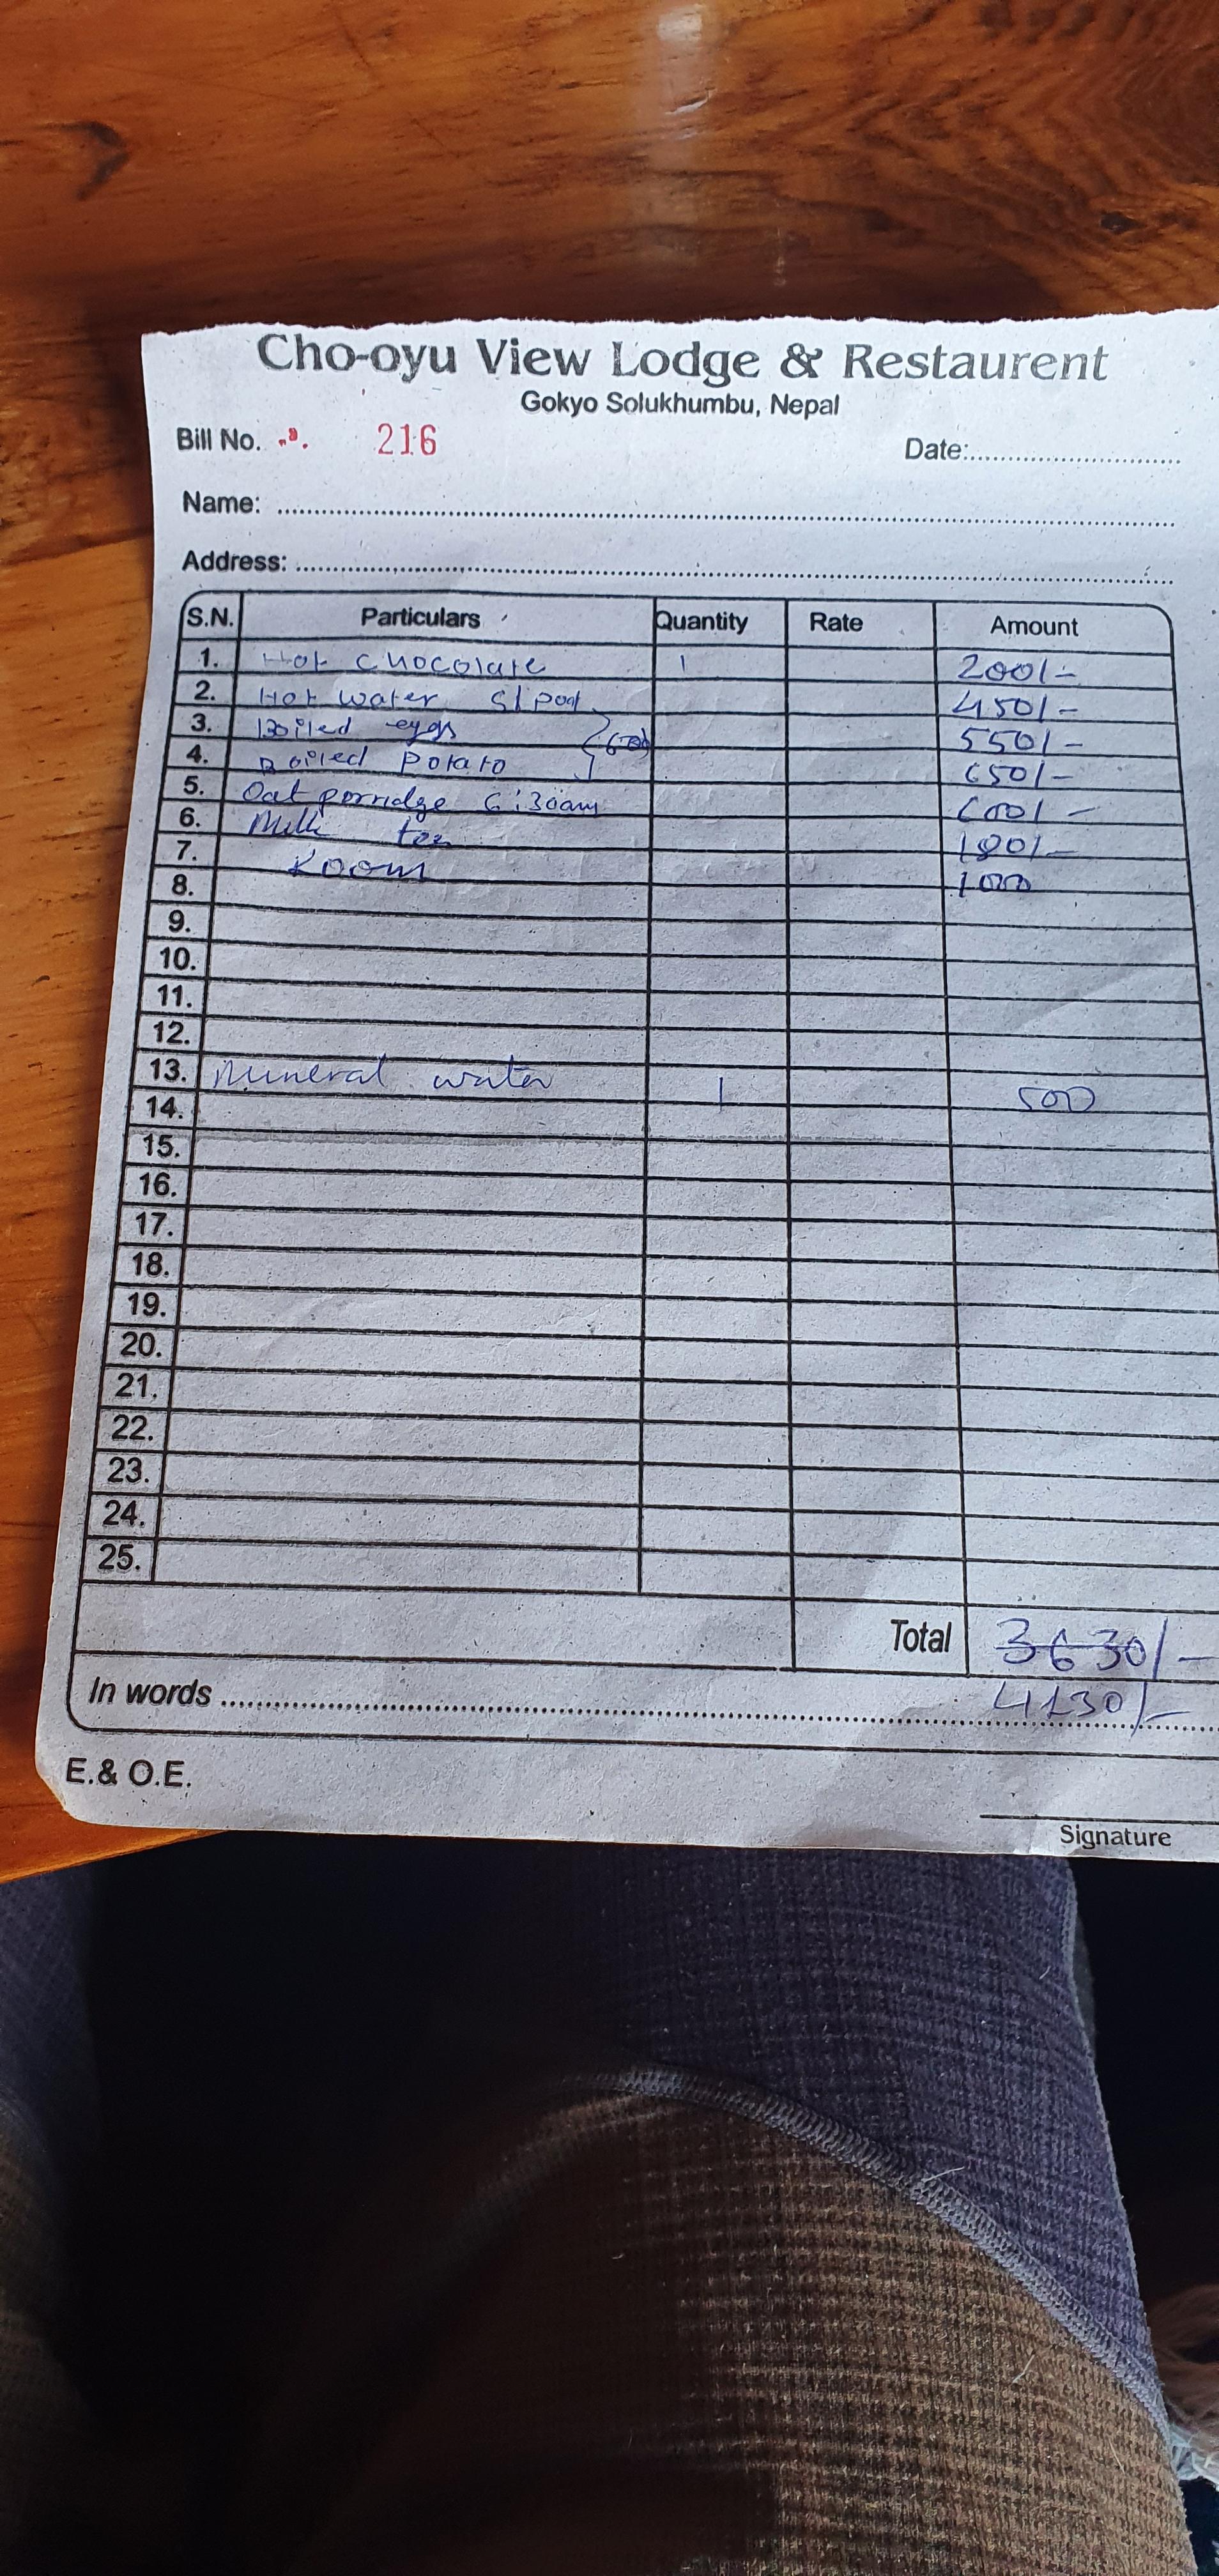 Cho-oyu View Lodge & Restaurent
Gokyo Solukhumbu, Nepal
Bill No. 216 Date:
Name:
Address:
S.N. Particulars Quantity Rate Amount
1. Hot chocolate 1 200/-
2. Hot water s/pot 450/-
3. Boiled eggs 550/-
4. Boiled Potato 650/-
5. Oat porridge 6:30am 600/-
6. Milk tea 180/-
7. Room 1000
8.
9.
10.
11.
12.
13. Mineral water 1 500
14.
15.
16.
17.
18.
19.
20.
21.
22.
23.
24.
25.
Total 3630/-
In words 4130/-
E.& O.E.
Signature